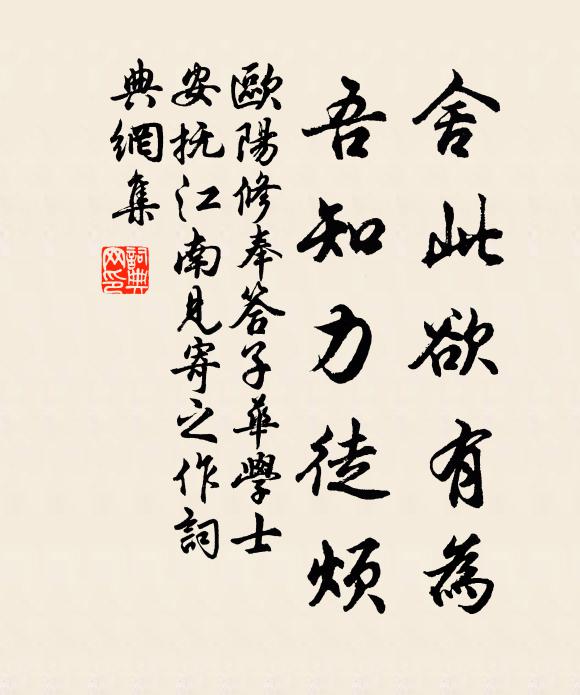 舍此欲有為
吾知力徒煩
歐陽修奉答子華學士
安抚江南見寄之作詞
典網集
詞典
网印